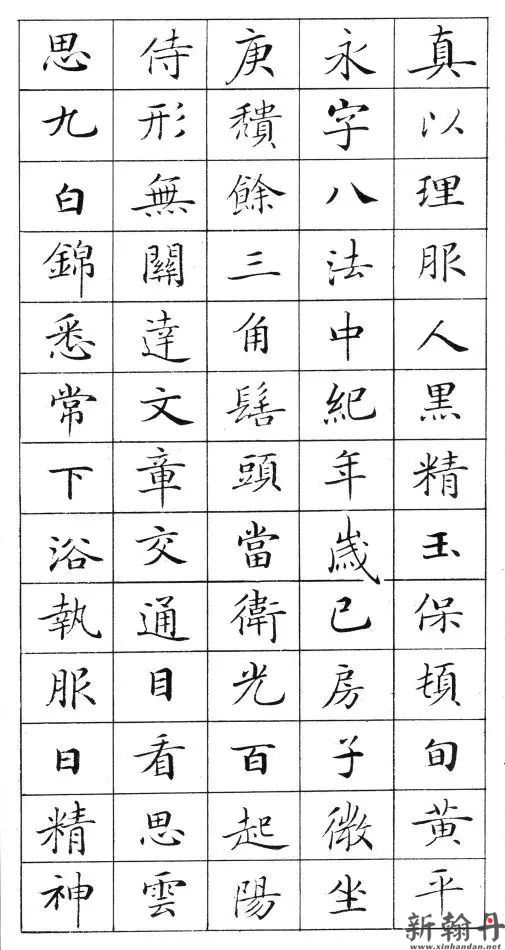 真以理服人黑精玉保頓旬黃平
永字八法中紀年歲已房子微坐
庚穨餘三角髻頭當衛光百起陽
侍形無關達文章交通目看思雲
思九白錦悉常下浴執服日精神
新翰丹
www.xinhandan.net